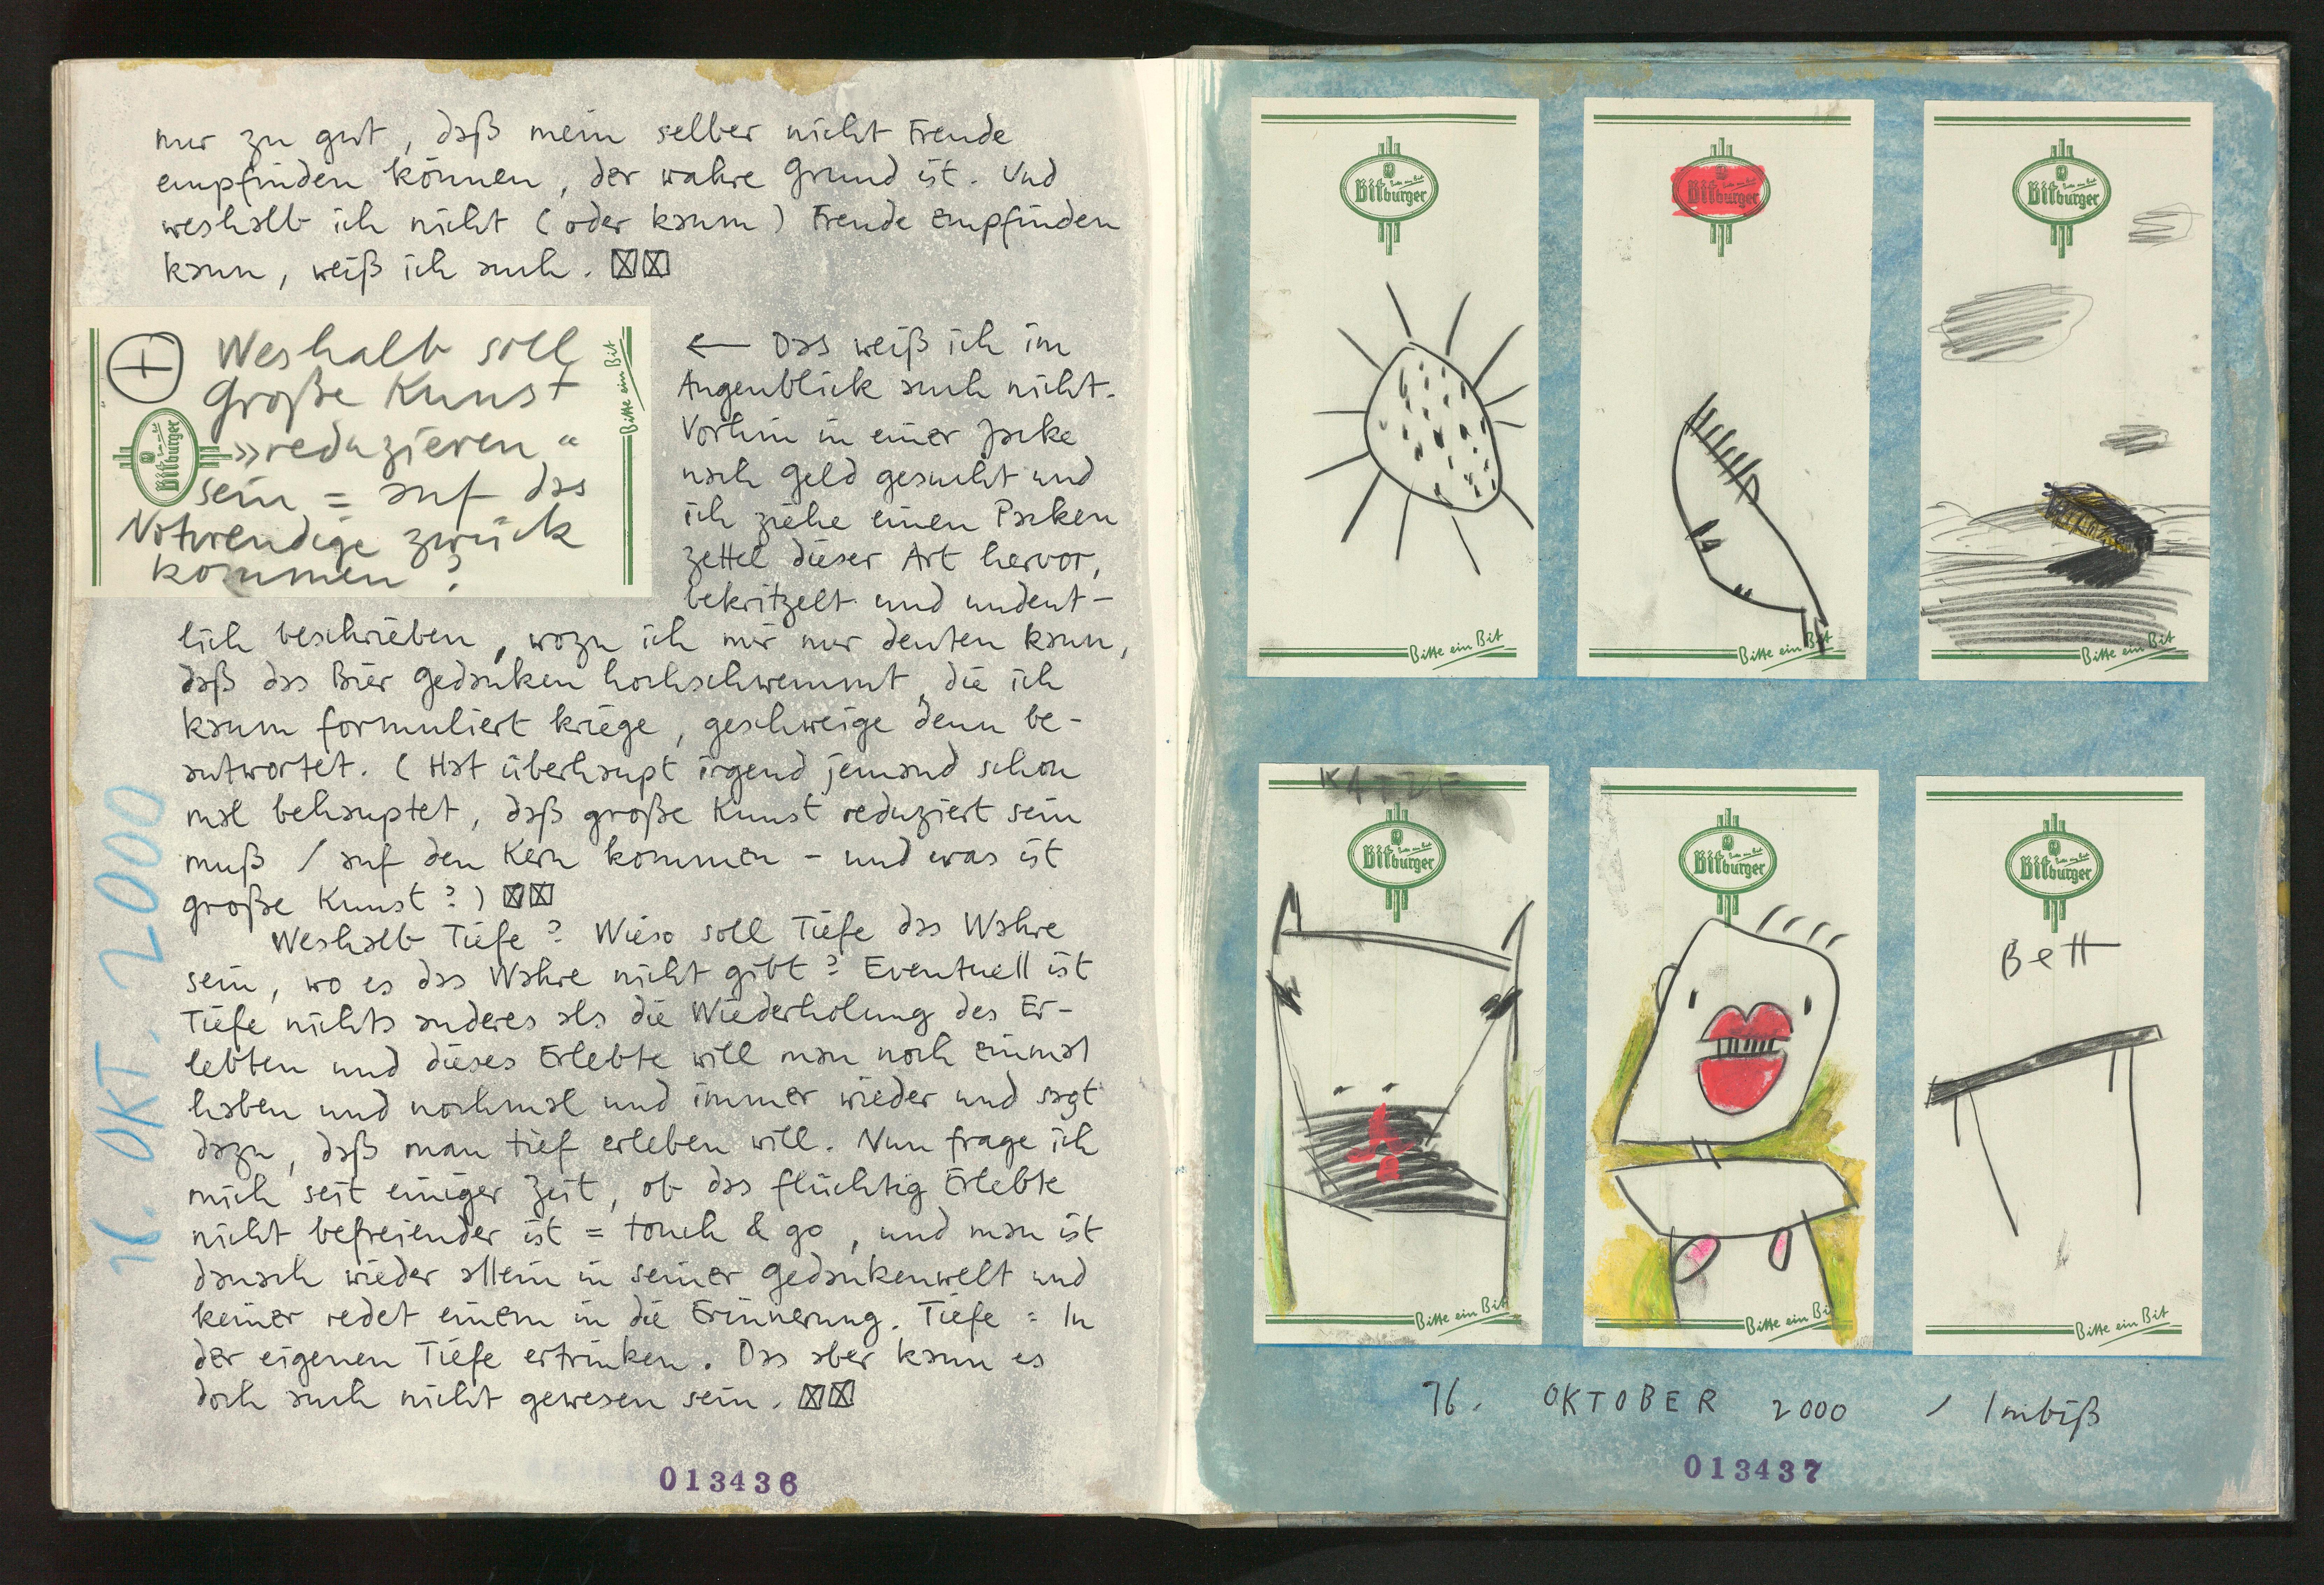 nur zu gut, daß mein selber nicht Freude
empfinden können, der wahre Grund ist. Und
weshalb ich nicht (oder kaum) Freude empfinden
kann, weiß ich auch. ☒☒
+ Weshalb soll
Große Kunst
»reduzieren“
sein = auf das
Notwendige zurück
kommen?
Bitburger
Bitte ein Bit
← Das weiß ich im
Augenblick auch nicht.
Vorhin in einer Jacke
nach Geld gesucht und
ich ziehe einen Packen
Zettel dieser Art hervor,
bekritzelt und undeut-
lich beschrieben, wozu ich mir nur denken kann,
daß das Bier Gedanken hochschwemmt, die ich
kaum formuliert kriege, geschweige denn be-
antwortet. (Hat überhaupt irgend jemand schon
mal behauptet, daß große Kunst reduziert sein
muß / auf den Kern kommen - und was ist
große Kunst?) ☒☒
Weshalb Tiefe? Wieso soll Tiefe das Wahre
sein, wo es das Wahre nicht gibt? Eventuell ist
Tiefe nichts anderes als die Wiederholung des Er-
lebten und dieses Erlebte will man noch einmal
haben und nochmal und immer wieder und sagt
dazu, daß man tief erleben will. Nun frage ich
mich seit einiger Zeit, ob das flüchtig Erlebte
nicht befreiender ist = touch & go, und man ist
danach wieder allein in seiner Gedankenwelt und
keiner redet einem in die Erinnerung. Tiefe = In
der eigenen Tiefe ertrinken. Das aber kann es
doch auch nicht gewesen sein. ☒☒
16. OKT. 2000
013436
Bitburger
Bitte ein Bit
Bitburger
Bitte ein Bit
Bitburger
Bitte ein Bit
KATZE
Bitburger
Bitte ein Bit
Bitburger
Bitte ein Bi
Bitburger
Bett
Bitte ein Bit
16. OKTOBER 2000 / Imbiß
013437